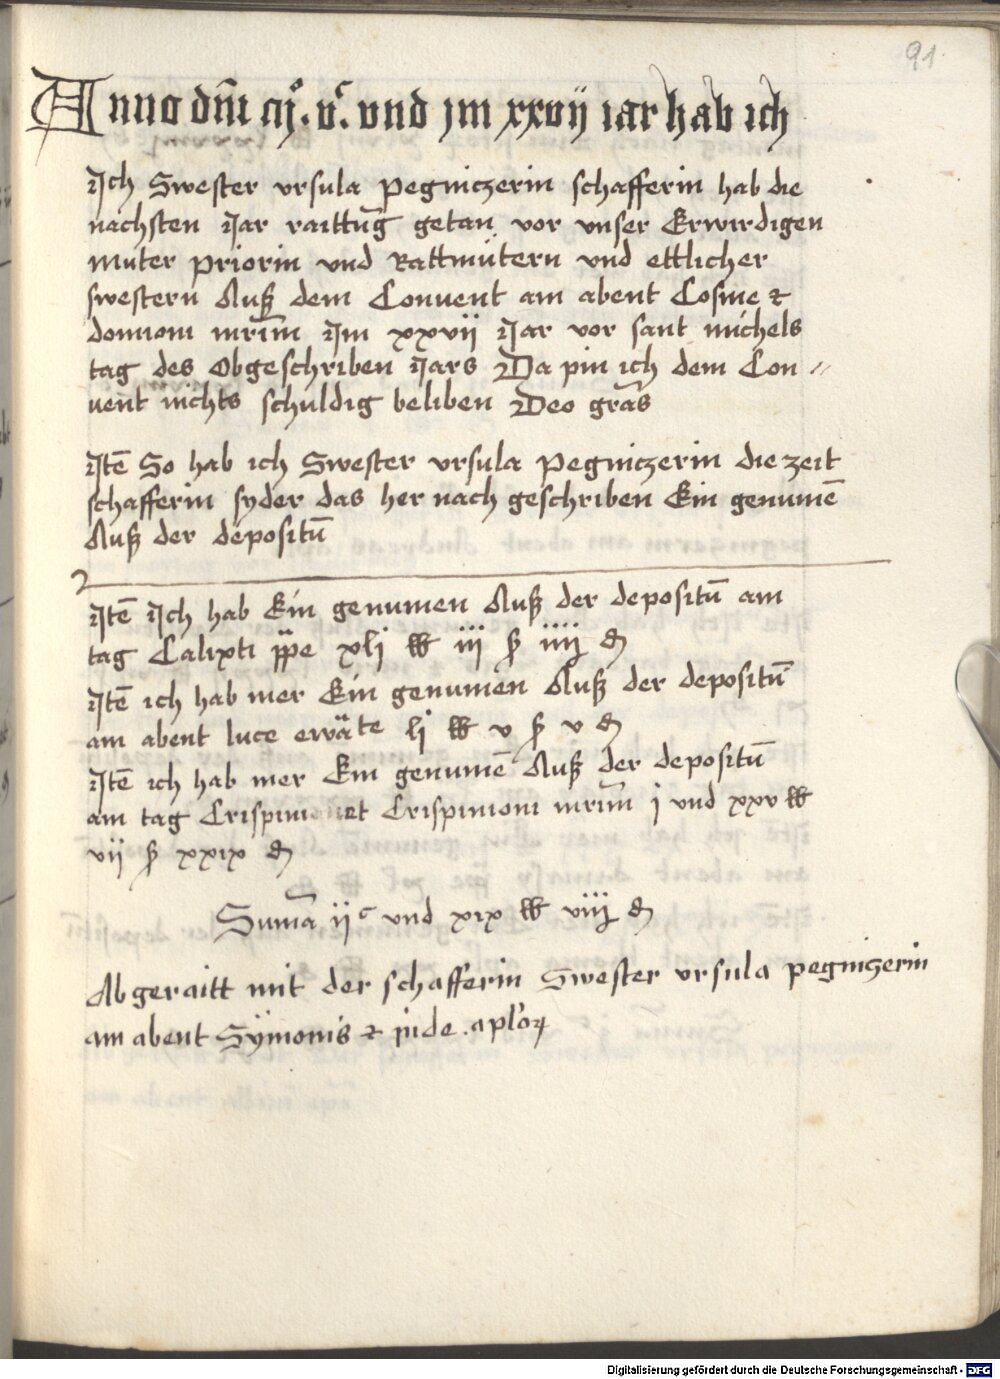 91
Anno dm̄ mͦ. vᶜ. vnd jm xxvij iar hab ich
Jch Swester vrsula pegniczerin schafferin hab die
nachsten Jar raittūg getan vor vnser Erwirdigen
muter priorin vnd Rattmütern vnd ettlicher
swestern Auß dem Conuent am abent Cosme et
domiom mrīm Jm xxvii Jar vor sant michels
tag des Obgeschriben Jars Da pin ich dem Con〃
uent nichts schuldig beliben Deo grās
Jtē So hab ich Swester vrsula pegniczerin die zeit
schafferin syder das her nach geschriben Ein genumē
Auß der depositū
Jtē Jch hab Ein genumen Auß der depositū am
tag Calixti ppe xlj ℔ iii ß iiij ₰
Jtē ich hab mer Ein genumen Auß der depositū
am abent luce ewāte lj ℔ v ß v ₰
Jtē ich hab mer Ein genumē Auß der depositū
am tag Crispini et Crispiniom mrīm j vnd xxv ℔
vij ß xxix ₰
Suma iiᶜ vnd xix ℔ viij ₰
Abgeraitt mit der schafferin Swester vrsula pegniczerin
am abent Sÿmonis et jude aplorꝝ
Digitalisierung gefördert durch die Deutsche Forschungsgemeinschaft - DFG